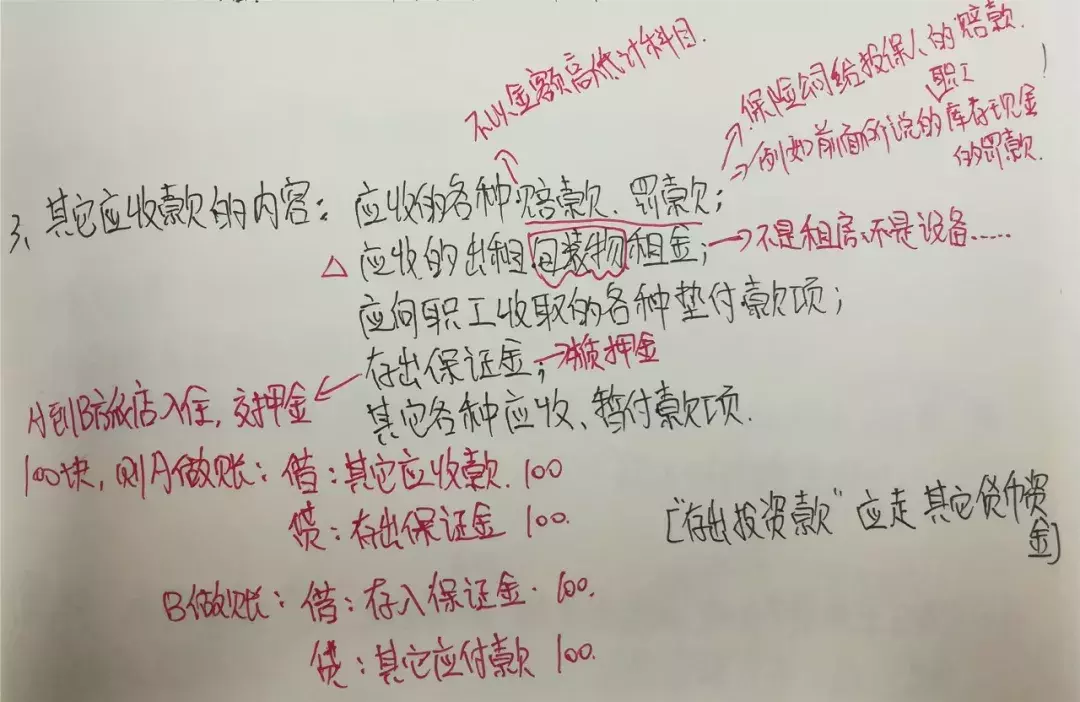 不以金额高低计科目.
保险公司给投保人的赔款.
职工
例如前面所说的库存现金
的罚款.
3、其它应收款的内容：应收的各种赔款、罚款；
△ 应收的出租包装物租金；→不是租房、不是设备……
应向职工收取的各种垫付款项；
存出保证金；→本质押金
其它各种应收、暂付款项.
A到B旅店入住，交押金
100块，则A做账：借：其它应收款.100
贷：存出保证金 100.
B做账：借：存入保证金.100.
贷：其它应付款 100.
[“存出投资款”应走其它货币资
金]